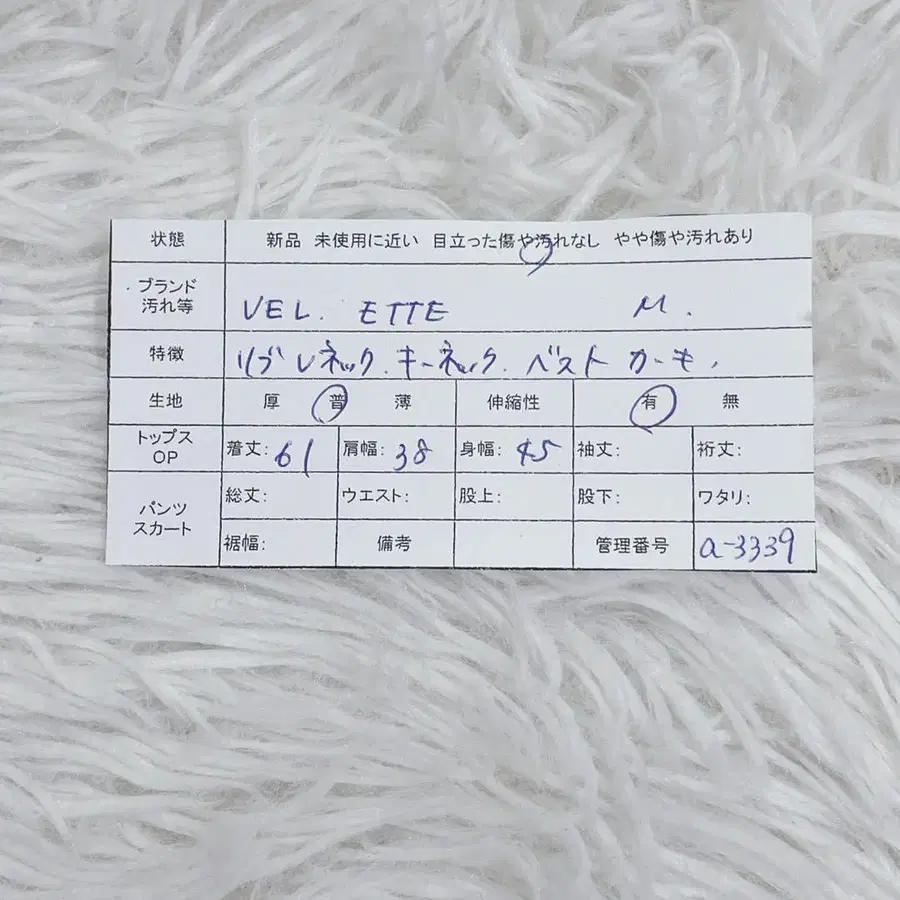 状態 新品 未使用に近い 目立った傷や汚れなし やや傷や汚れあり
ブランド
汚れ等 VEL. ETTE M.
特徴 リブ Vネック.キーネック.ベスト カーキ.
生地 厚 普 薄 伸縮性 有 無
トップス
OP 着丈: 61 肩幅: 38 身幅: 45 袖丈: 裄丈:
パンツ
スカート 総丈: ウエスト: 股上: 股下: ワタリ:
裾幅: 備考 管理番号 a-3339